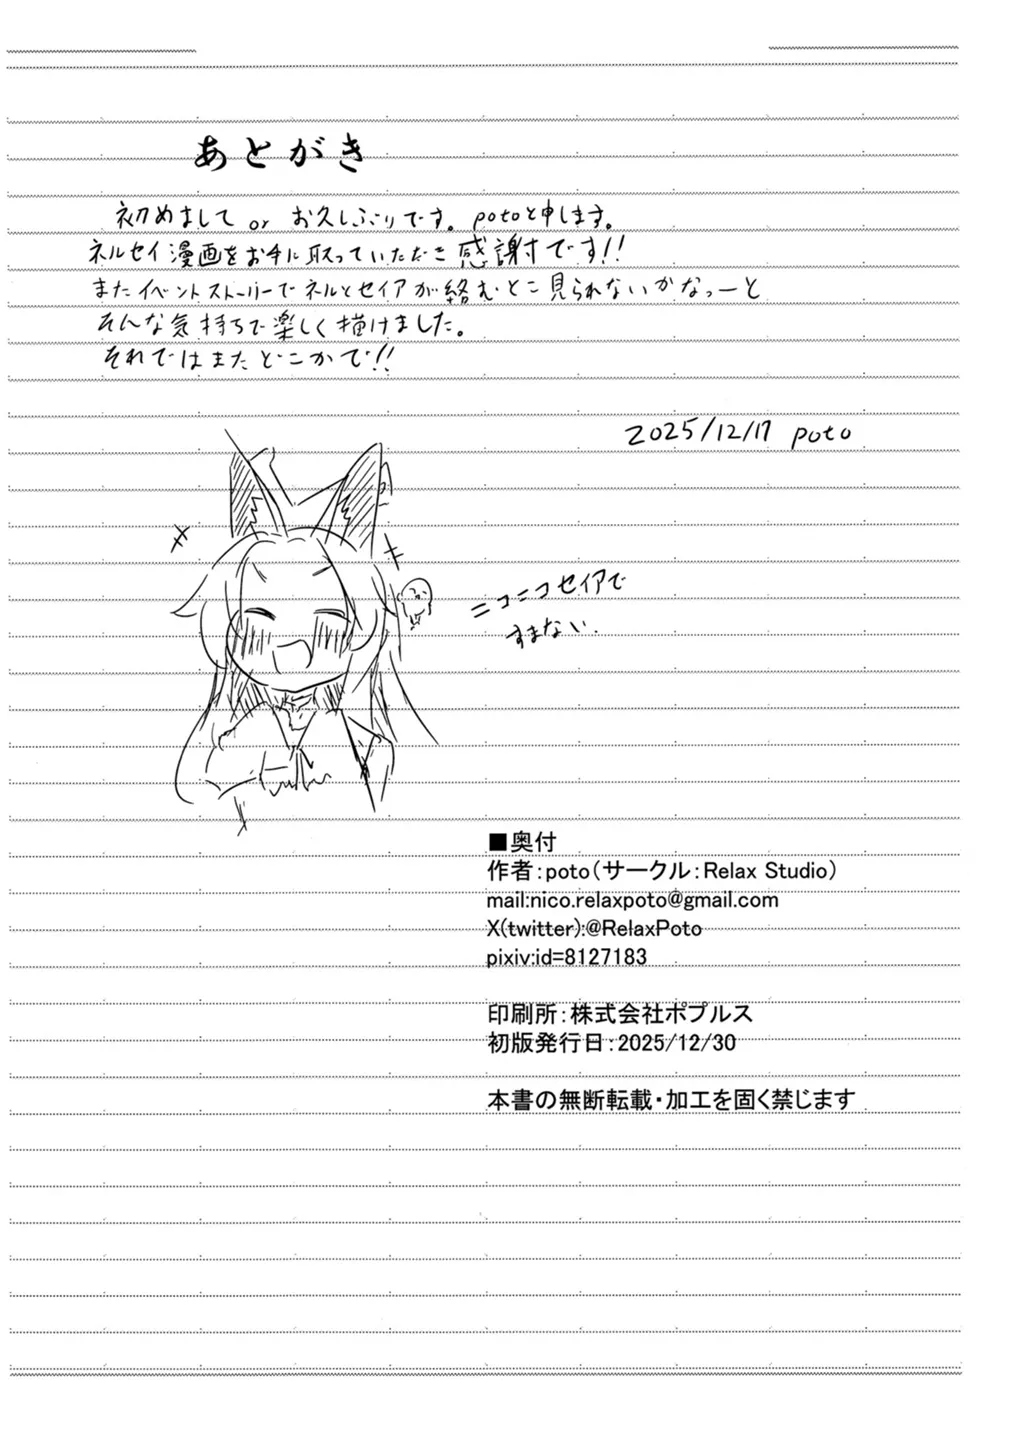 あとがき
初めまして or お久しぶりです。potoと申します。
ネルセイ漫画をお手に取っていただき感謝です!!
またイベントストーリーでネルとセイアが絡むとこ見られないかなっーと
そんな気持ちで楽しく描けました。
それではまたどこかで!!
2025/12/17 poto
ニコニコセイアで
すまない.
■奥付
作者:poto(サークル:Relax Studio)
mail:nico.relaxpoto@gmail.com
X(twitter):@RelaxPoto
pixiv:id=8127183
印刷所:株式会社ポプルス
初版発行日:2025/12/30
本書の無断転載・加工を固く禁じます